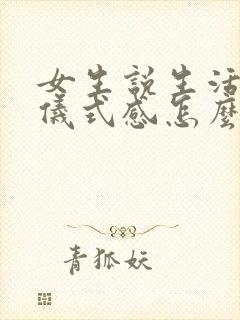 女生説生活
儀式感怎麼
青狐妖